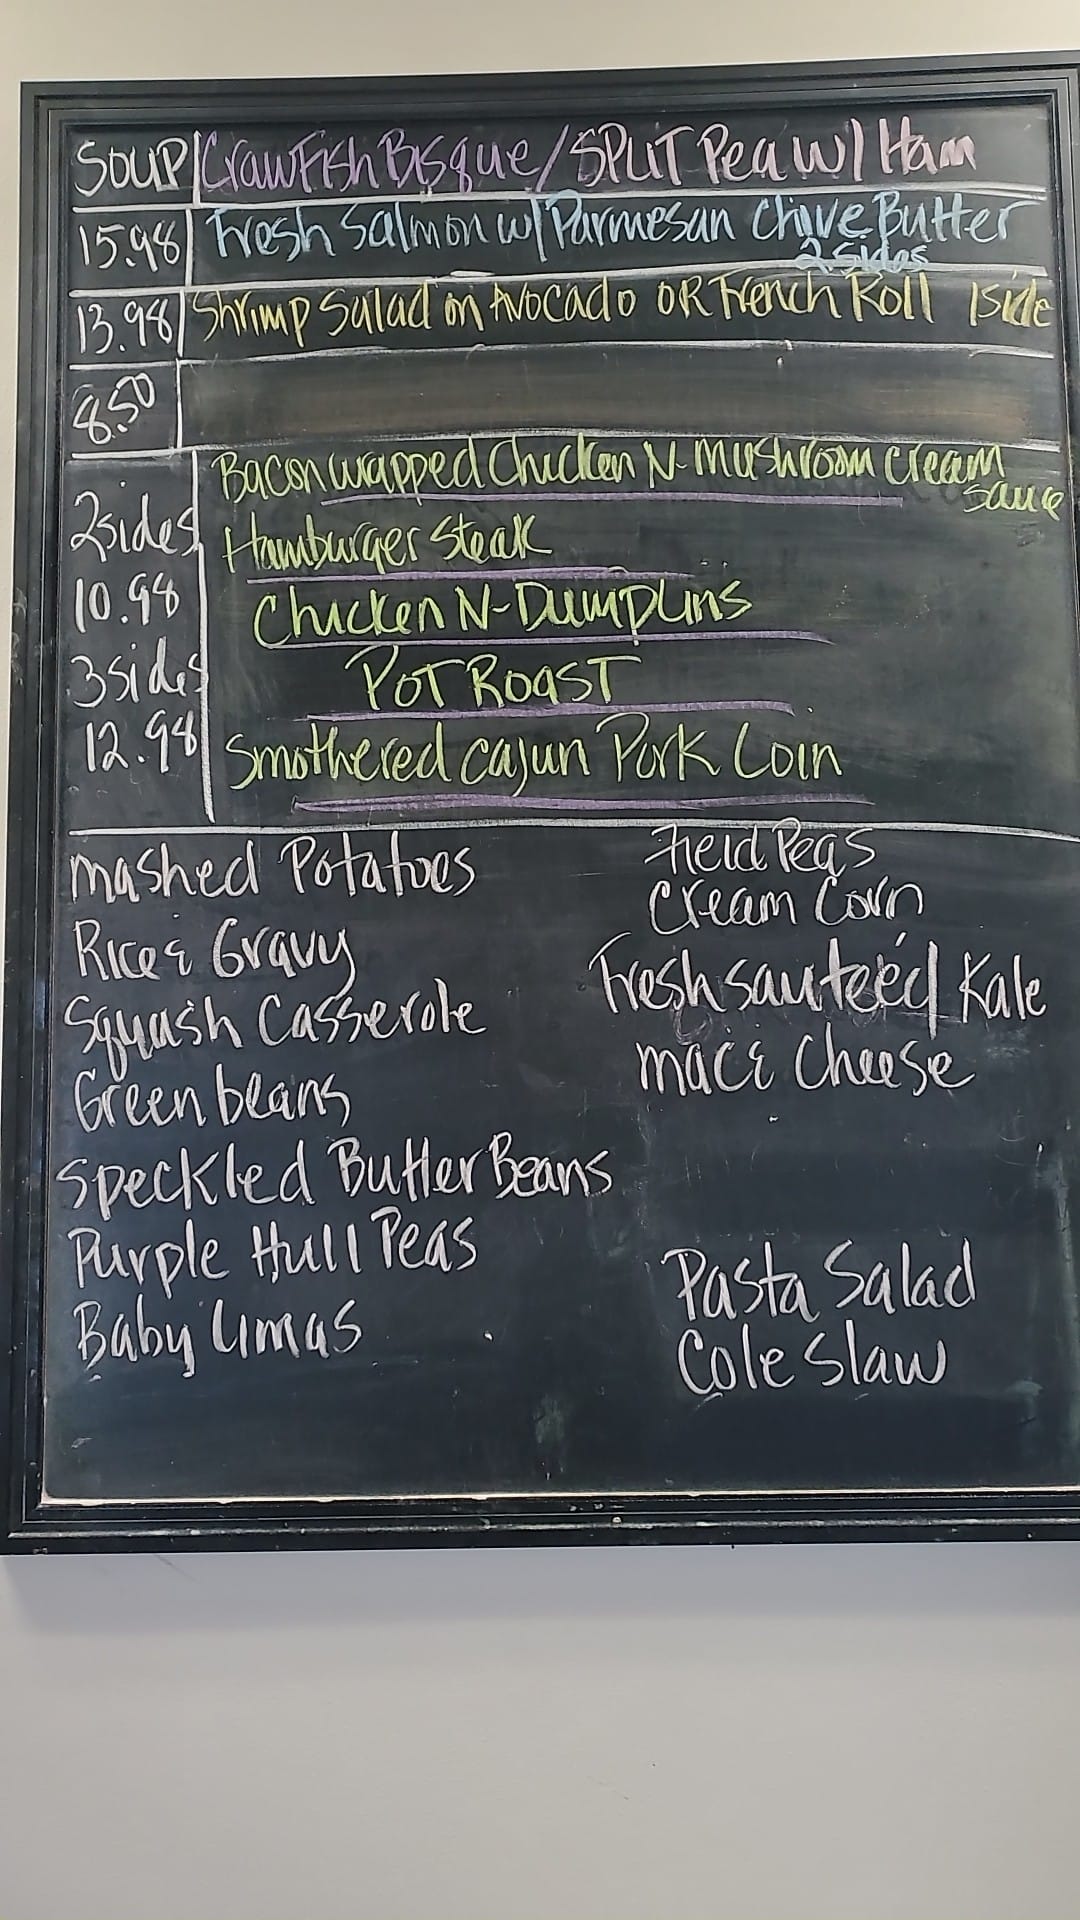 SOUP CrawFish Bisque / SPLIT Pea w/ Ham
15.98 Fresh Salmon w/ Parmesan Chive Butter
2 Sides
13.98 Shrimp Salad on Avocado OR French Roll 1side
8.50
Bacon wrapped Chicken N- Mushroom cream
sauce
2sides
Hamburger Steak
10.98
Chicken N-Dumplins
3sides
POT ROAST
12.98
Smothered Cajun Pork Loin
mashed Potatoes
Rice & Gravy
Squash Casserole
Green beans
Speckled Butter Beans
Purple Hull Peas
Baby Limas
Field Peas
Cream Corn
Fresh sauteéd Kale
mac & Cheese
Pasta Salad
Cole Slaw